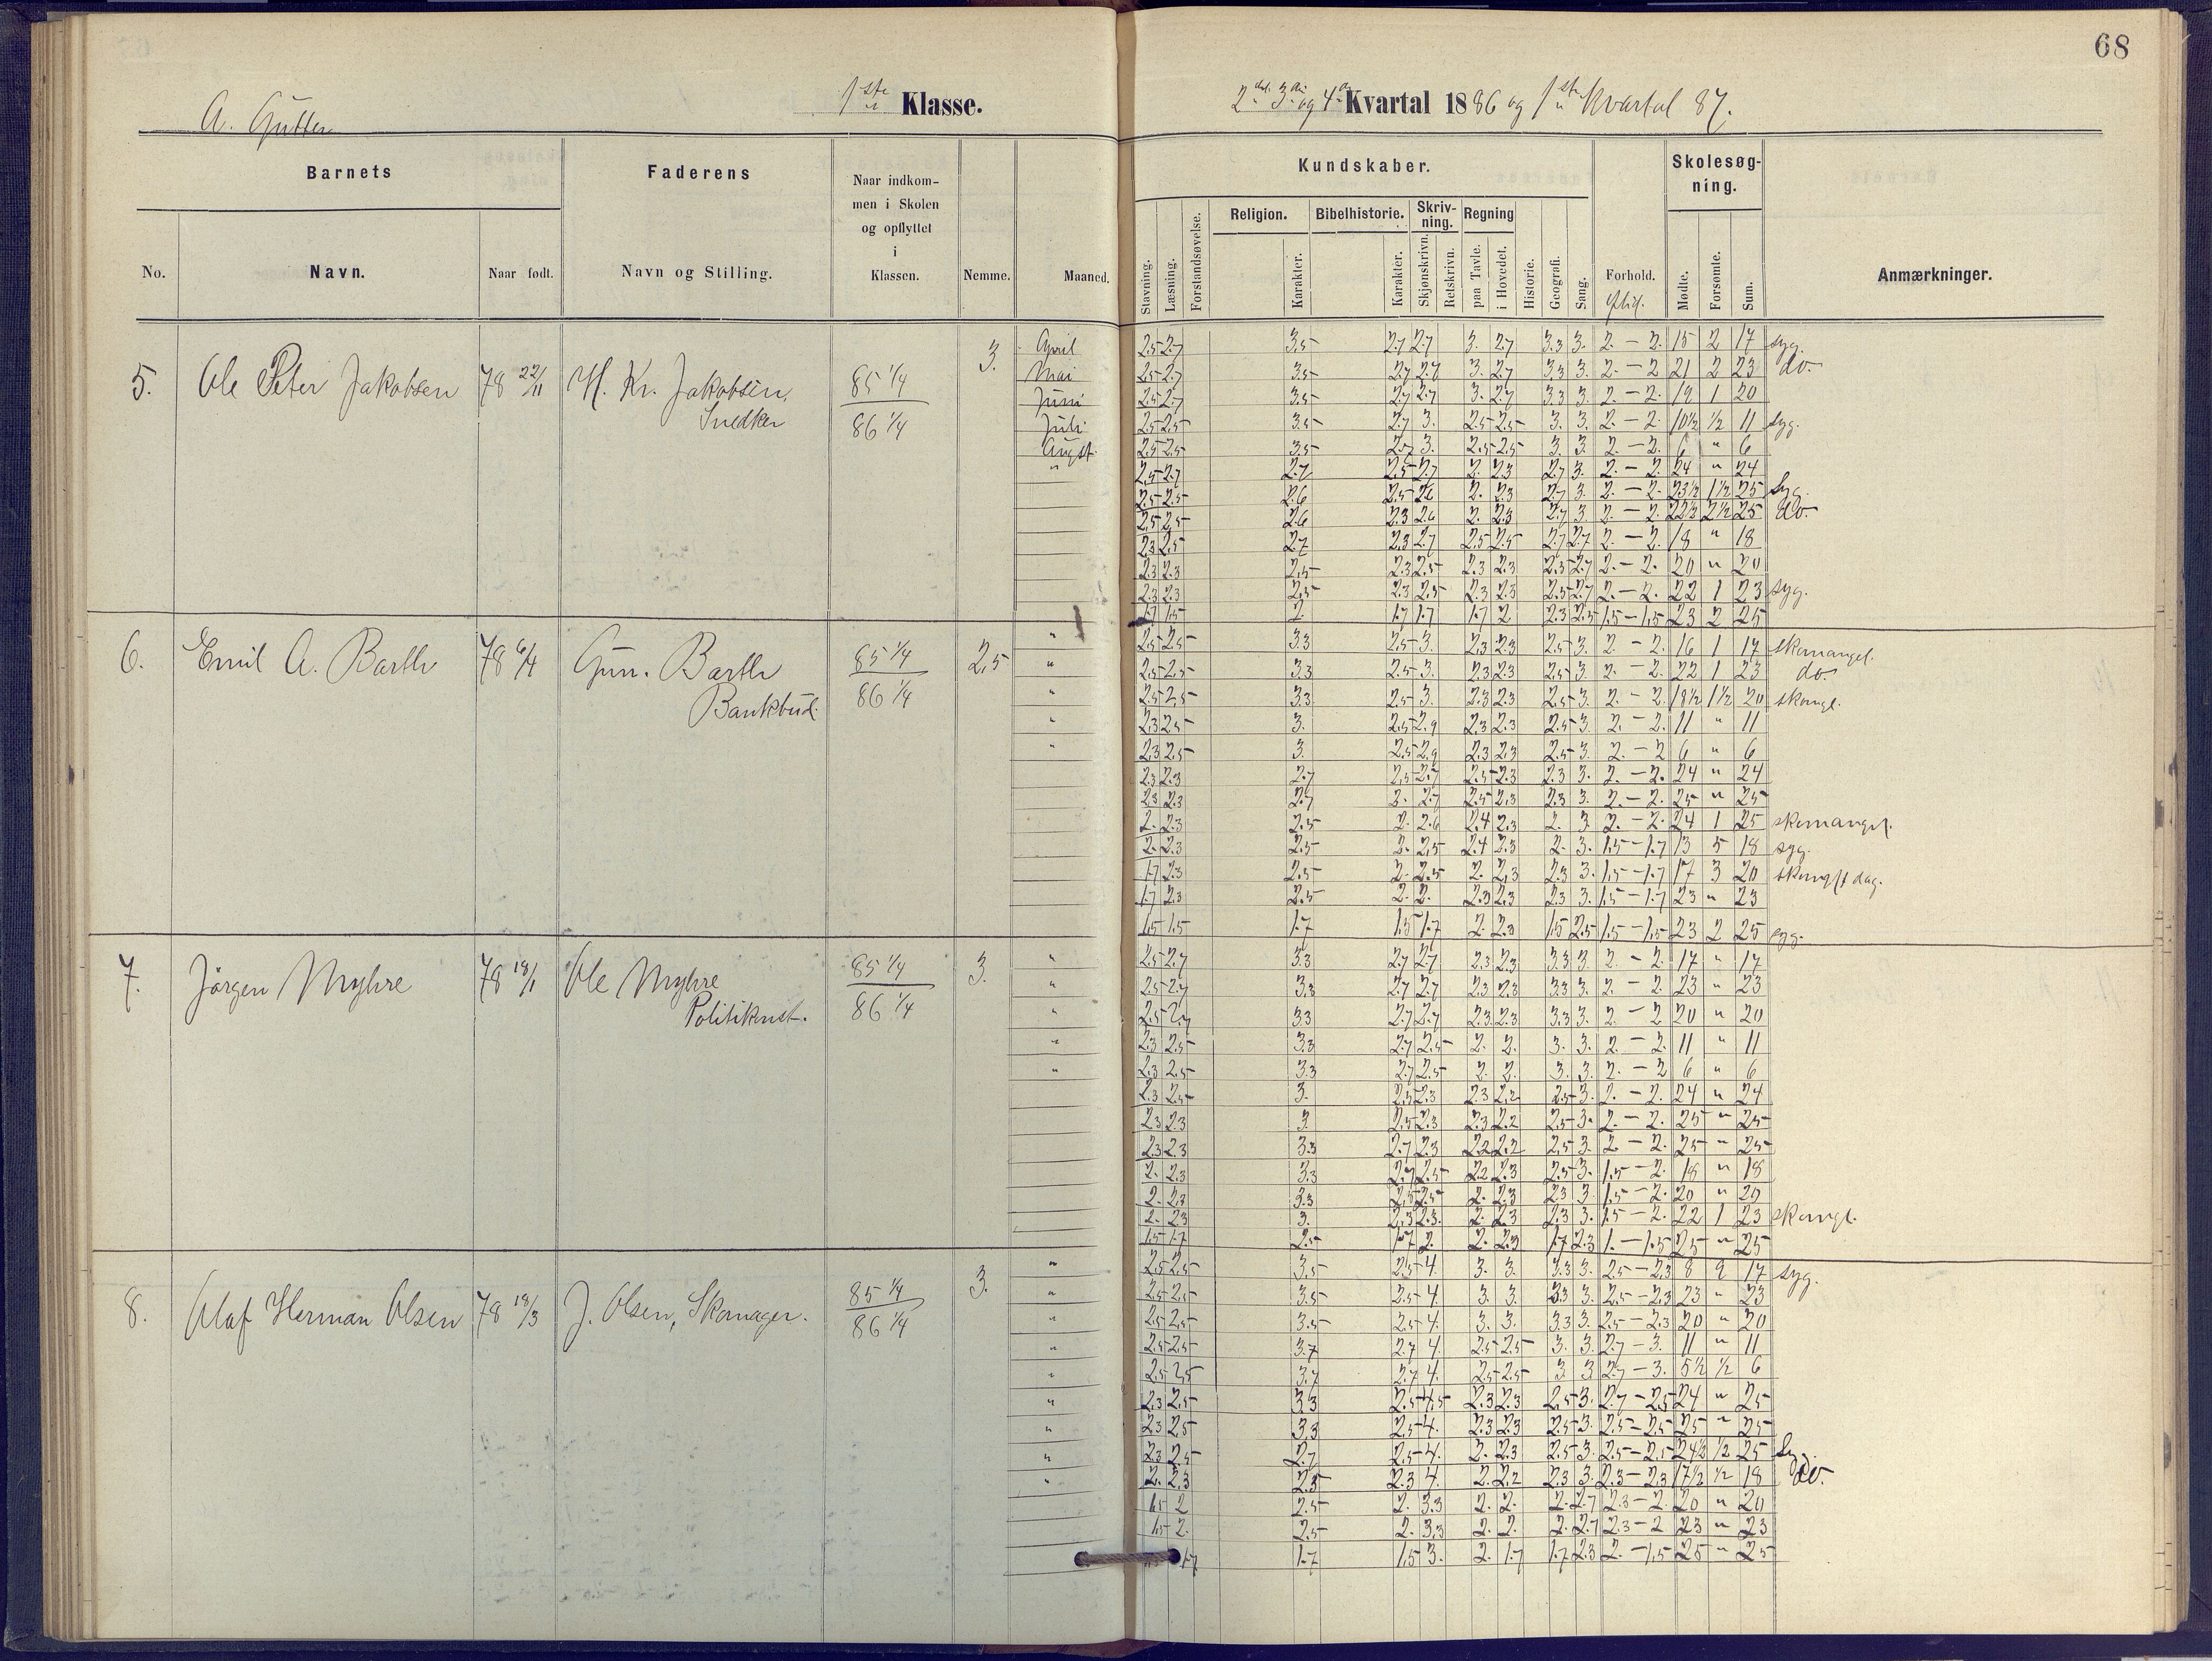 68
A. Gutter
1ste Klasse.
2det 3die og 4de Kvartal 1886 og 1ste Kvartal 87.
Barnets
Faderens
Naar indkom-
men i Skolen
og opflyttet
i
Klassen.
Nemme.
Maaned.
No.
Navn.
Naar født.
Navn og Stilling.
Kundskaber.
Skolesøg-
ning.
Religion.
Bibelhistorie.
Skriv-
ning.
Regning
Stavning.
Læsning.
Forstandsøvelse.
Karakter.
Karakter.
Skjønskrivn.
Retskrivn.
paa Tavle.
i Hovedet.
Historie.
Geografi.
Sang.
Forhold.
Flid.
Mødte.
Forsømte.
Sum.
Anmærkninger.
5. Ole Peter Jakobsen 78 22/11 H. Kr. Jakobsen, Snedker 85 1/4 86 1/4 3.
April 2,5 2,7 3,5 2,7 2,7 3. 2,7 3,3 3. 2. — 2. 15 2 17 syg.
Mai 2,5 2,7 3,5 2,7 2,7 3. 2,7 3,3 3. 2. — 2 21 2 23 do.
Juni 2,5 2,7 3,5 2,7 2,7 3. 2,7 3,3 3. 2. — 2. 19 1 20
Juli 2,5 2,5 3,5 2,7 3. 2,5 2,5 3. 3. 2. — 2. 10½ ½ 11 syg.
Augst. 2,5 2,5 3,5 2,7 3. 2,5 2,5 3. 3. 2. — 2. 6 " 6
" 2,5 2,7 2,7 2,5 2,7 2. 2,3 2,7 3. 2. — 2. 24 " 24
2,5 2,5 2,6 2,5 2,6 2. 2,3 2,7 3. 2. — 2. 23½ 1½ 25 Syg.
2,5 2,5 2,6 2,3 2,6 2. 2,3 2,7 3 2. — 2. 22½ 2½ 25 do.
2,3 2,5 2,7 2,3 2,7 2,5 2,5 2,7 2,7 2. — 2. 18 " 18
2,3 2,3 2,5 2,3 2,5 2,3 2,3 2,5 2,7 2. — 2. 20 " 20
2,3 2,3 2,5 2,3 2,5 2,3 2,3 2,5 2,7 2. — 2. 22 1 23 syg.
1,7 1,5 2. 1,7 1,7 1,7 2 2,3 2,5 1,5 — 1,5 23 2 25
6. Emil A. Barth 78 6/4 Gun. Barth Bankbud. 85 1/4 86 1/4 2,5
" 2,5 2,5 3,3 2,5 3. 2,3 2,3 2,5 3. 2 — 2. 16 1 17 skomangel.
" 2,5 2,5 3,3 2,5 3. 2,3 2,3 2,5 3. 2. — 2. 22 1 23 do.
" 2,5 2,5 3,3 2,5 3. 2,3 2,3 2,5 3. 2. — 2. 18½ 1½ 20 skomgl.
" 2,3 2,5 3. 2,5 2,9 2,3 2,3 2,5 3. 2. — 2. 11 " 11
" 2,3 2,5 3. 2,5 2,9 2,3 2,3 2,5 3. 2. — 2 6 " 6
2,3 2,3 2,7 2,5 2,7 2,5 2,3 2,3 3. 2. — 2. 24 " 24
2,3 2,3 2,7 2. 2,7 2,5 2,3 2,3 3. 2. — 2. 25 " 25
2. 2,3 2,5 2. 2,6 2,4 2,3 2. 3. 2. — 2. 24 1 25 skomangel.
2. 2,3 2,5 2. 2,5 2,4 2,3 2. 3. 1,5 — 1,7 13 5 18 syg.
1,7 2,3 2,5 2. 2,5 2. 2,3 2,3 3. 1,5 — 1,7 17 3 20
1,7 2,3 2,5 2. 2. 2,3 2,3 2,3 3. 1,5 — 1,7 23 " 23
1,5 1,5 1,7 1,5 1,7 2. 2,3 1,5 2,5 1,5 — 1,5 23 2 25 syg.
7. Jörgen Myhre 78 18/1 Ole Myhre Politikonst. 85 1/4 86 1/4 3.
" 2,5 2,7 3,3 2,7 2,7 2,3 2,3 3,3 3. 2. — 2. 17 " 17
" 2,5 2,7 3,3 2,7 2,7 2,3 2,3 3,3 3. 2. — 2. 23 " 23
" 2,5 2,7 3,3 2,7 2,7 2,3 2,3 3,3 3. 2. — 2 20 " 20
" 2,3 2,5 3,3 2,7 2,5 2. 2. 3. 3. 2. — 2. 11 " 11
" 2,3 2,5 3,3 2,7 2,5 2. 2. 3. 3. 2. — 2 6 " 6
2,3 2,5 3. 2,5 2,3 2,3 2,2 2,5 3. 2. — 2. 24 " 24
2,3 2,3 3 2,5 2,3 2,3 2,2 2,5 3. 2. — 2. 25 " 25
2,3 2,3 3,3 2,7 2,3 2,2 2,2 2,5 3. 2. — 2. 25 " 25
2. 2,3 3,3 2,7 2,5 2,2 2,3 2,5 3. 1,5 — 2. 18 " 18
2. 2,3 3,3 2,5 2,5 2. 2,3 2,3 3. 1,5 — 2. 20 " 20
2. 2,3 3. 2,3 2,3. 2. 2,3 2,3 3. 1,5 — 2. 22 1 23 skomgl.
1,5 1,7 2,5 1,7 2. 2. 2,3 1,7 2,3 1. — 1,5 25 " 25
8. Olaf Herman Olsen 78 18/3 J. Olsen, Skomager. 85 1/4 86 1/4 3.
" 2,5 2,5 3,5 2,5 4. 3. 3. 3,3 3. 2,5 — 2,3 8 9 17 syg.
" 2,5 2,5 3,5 2,5 4. 3. 3. 3,3 3. 2,5 — 2,3 23 " 23
" 2,5 2,5 3,5 2,5 4. 3. 3. 3,3 3. 2,5 — 2,3 20 " 20
" 2,5 2,5 3,7 2,7 4. 2,5 2,5 3. 3. 2,7 — 3. 11 " 11
" 2,5 2,5 3,7 2,7 4. 2,5 2,5 3. 3 2,7 — 3. 5½ ½ 6
" 2,3 2,5 3,3 2,5 4,5 2,3 2,3 2,5 3. 2,7 — 2,5 24 " 25
" 2,3 2,5 3,3 2,5 4. 2,3 2,3 2,5 3. 2,5 — 2,5 25 " 25
" 2,3 2,5 2,7 2,5 4. 2. 2,3 2,5 3. 2,5 — 2,5 24½ ½ 25 Syg.
" 2. 2,3 2,5 2,3 4. 2. 2,2 2,3 3. 2,3 — 2,3 17½ ½ 18 do.
1,5 2 2,5 2. 3,3 2. 2. 2. 2,7 2,3 — 2. 20 " 20
1,5 2. 2,5 2. 3,3 2. 2. 2. 2,7 2,3 — 2 23 " 23
1,7 1,7 1,5 3. 2. 1,7 1,7 2,3 2. — 1,5 25 " 25